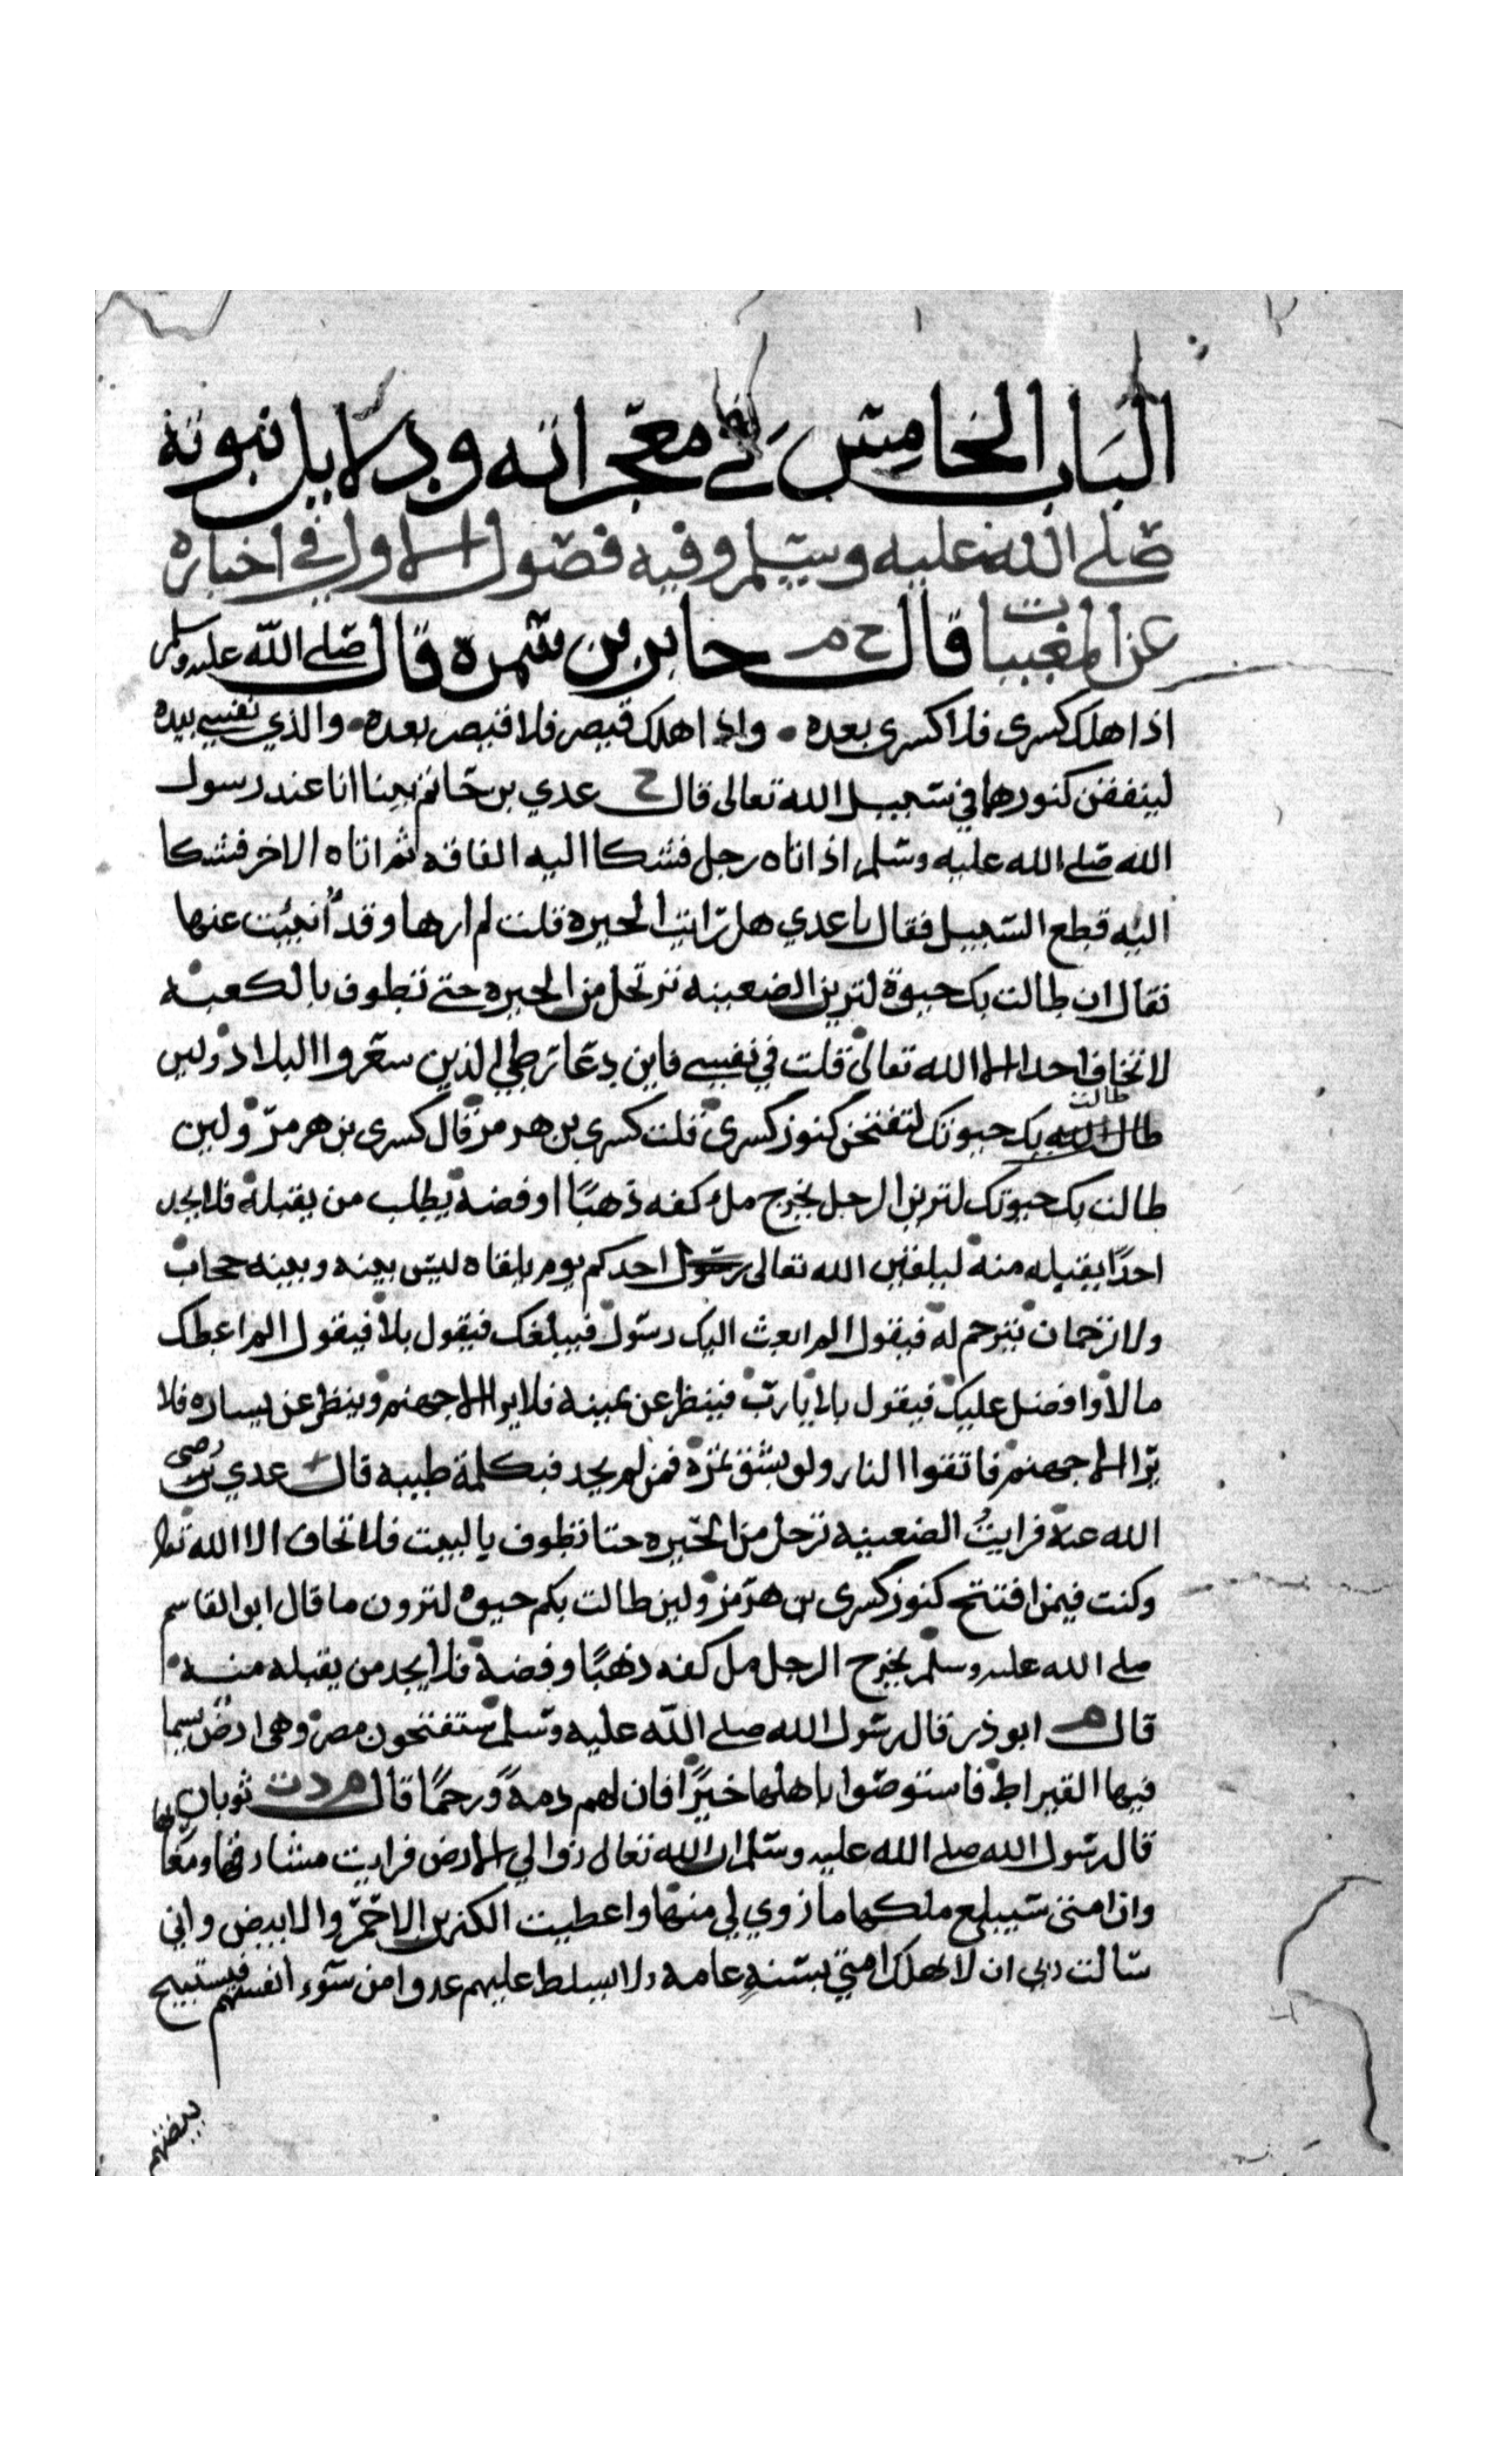 الباب الخامس في معجزاته ودلايل نبوته
صلي الله عليه وسلم وفيه فصول الاول في اخباره
عن المغيبات قال خ م جابر بن سمرة قال صلي الله عليه وسلم
اذا هلك كسرى فلا كسرى بعده واذا هلك قيصر فلا قيصر بعده والذي نفسي بيده
لينفقن كنوزهما في سبيل الله تعالى قال خ عدي بن حاتم بينا انا عند رسول
الله صلي الله عليه وسلم اذ اتاه رجل فشكا اليه الفاقه ثم اتاه الاخر فشكا
اليه قطع السبيل فقال يا عدي هل رايت الحيرة قلت لم ارها وقد انبئت عنها
فقال ان طالت بك حيوة لترين الضعينه ترتحل من الحيره حتي تطوف بالكعبه
لا تخاف احدا الا الله تعالى قلت في نفسي فاين دعار طي الذين سعروا البلاد ولين
طالت بك حيوتك لتفتحن كنوز كسرى قلت كسرى بن هرمز قال كسرى بن هرمز ولين
طالت بك حيوتك لترين الرجل يخرج مل كفه ذهبًا او فضه يطلب من يقبله فلا يجد
احدًا يقبله منه ليلقين الله تعالى احدكم يوم يلقاه ليس بينه وبينه حجاب
ولا ترجمان يترجم له فيقول الم ابعث اليك رسول فيبلغك فيقول بلا فيقول الم اعطك
مالا وافضل عليك فيقول بلا يا رب فينظر عن يمينه فلا يرا الا جهنم وينظر عن يساره فلا
يرا الا جهنم فاتقوا النار ولو بشق تمرة فمن لم يجد فبكلمة طيبه قال عدي رضي
الله عنه فرايتُ الضعينه ترحل من الحيره حتا تطوف بالبيت فلا تخاف الا الله تعالى
وكنت فيمن افتتح كنوز كسرى بن هرمز ولين طالت بكم حيوه لترون ما قال ابو القاسم
صلي الله عليه وسلم يخرج الرجل مل كفه ذهبًا وفضة فلا يجد من يقبله منه
قال م ابو ذر قال رسول الله صلي الله عليه وسلم ستفتحون مصر وهي ارض يسما
فيها القيراط فاستوصوا باهلها خيرًا فان لهم ذمةً ورحمًا قال م د ت ثوبان
قال رسول الله صلي الله عليه وسلم ان الله تعالى زوا لي الارض فرايت مشارقها ومغاربها
وان امتي سيبلغ ملكها ما زوي لي منها واعطيت الكنزين الاحمر والابيض واني
سالت ربي ان لا يهلك امتي بسنهٍ عامه ولا يسلط عليهم عدوا من سوء انفسهم فيستبيح
بيضتهم